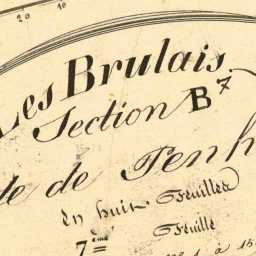 20 10
Les Brulais.
Section B7
de Penh
en huit Feuilles
7ème Feuille
1 à 15